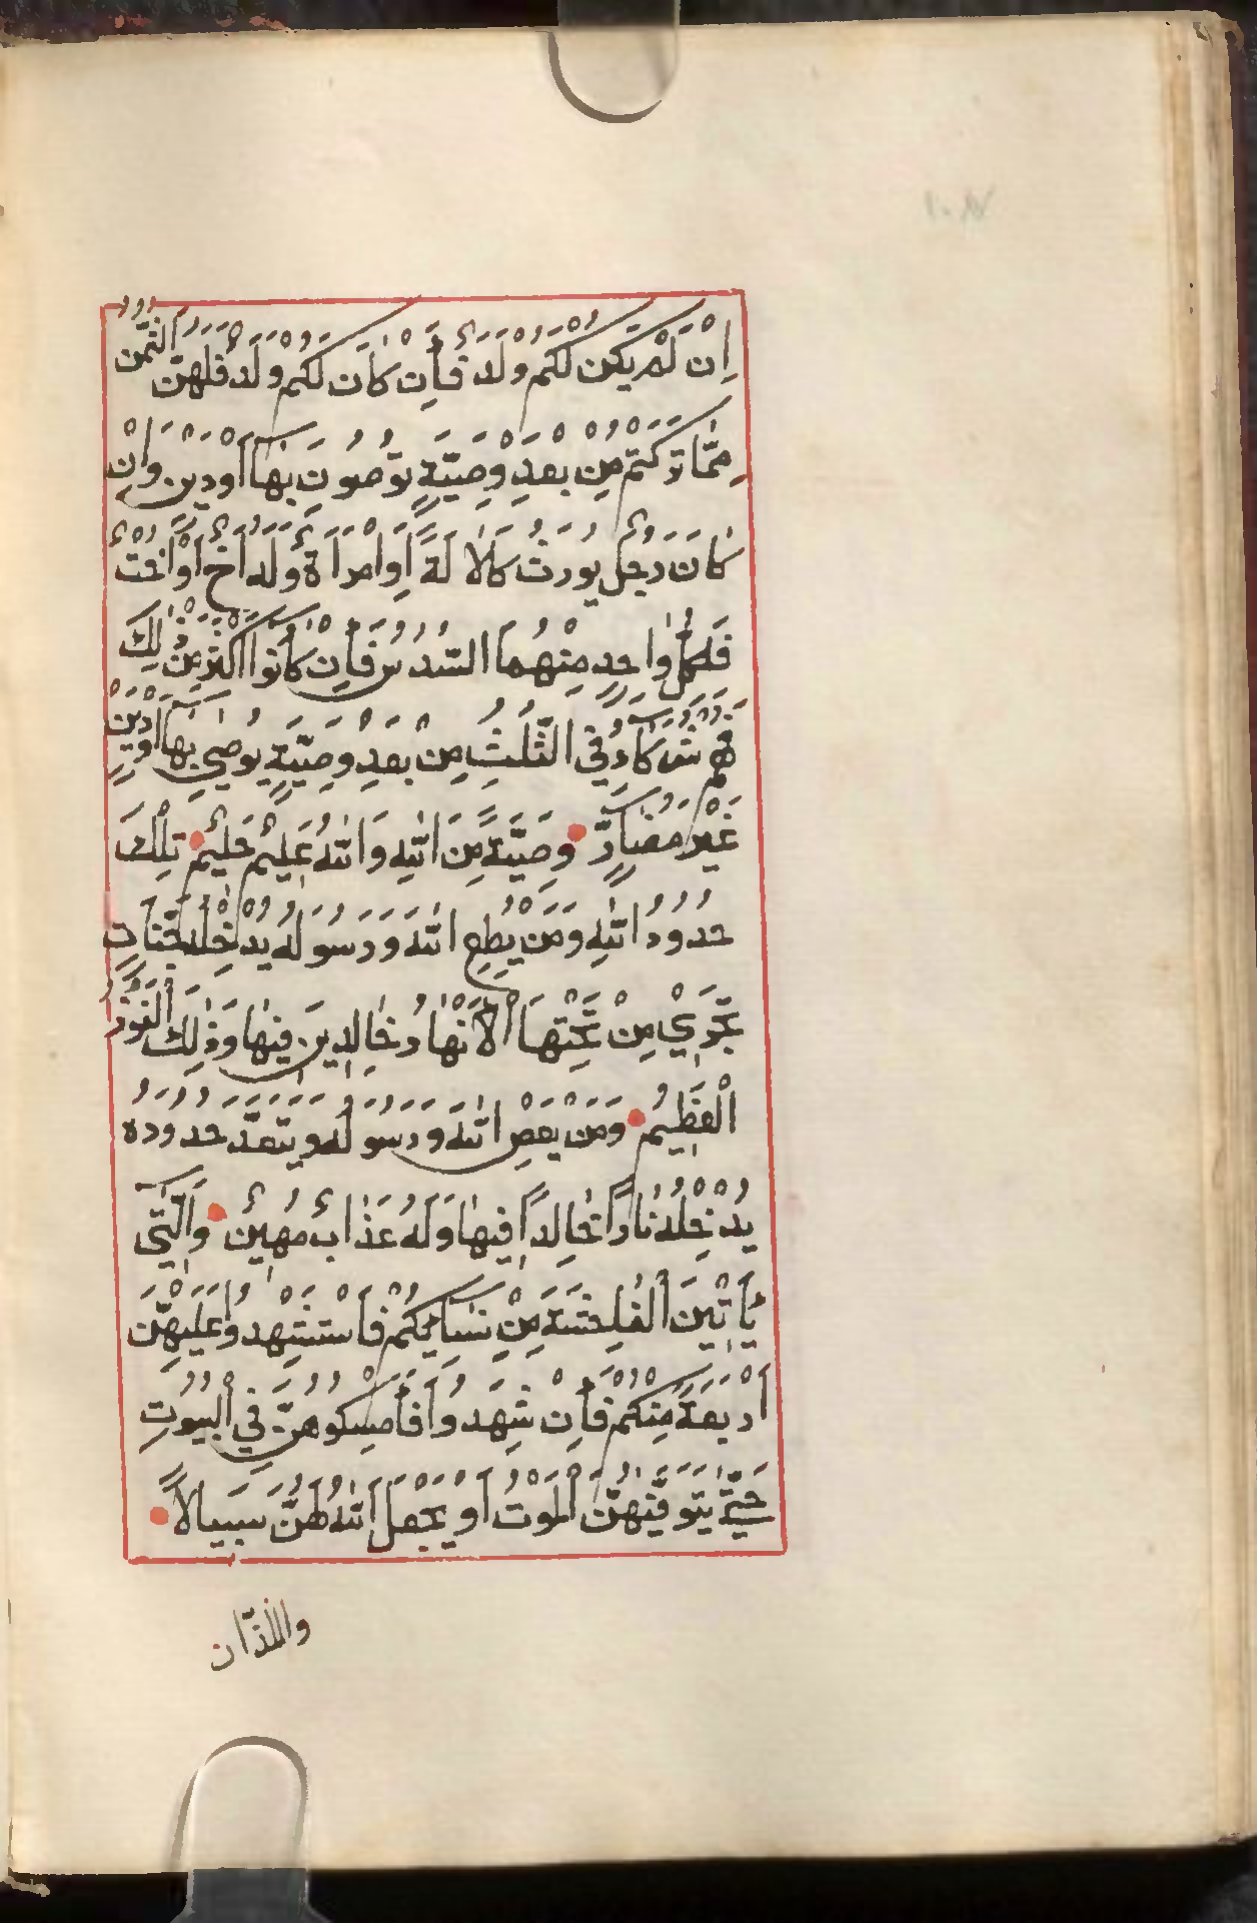 اِنْ لَمْ يَكُنْ لَكُمْ وَلَدٌ فَاِنْ كَانَ لَكُمْ وَلَدٌ فَلَهُنَّ الثُّمُنُ
مِمَّا تَرَكْتُمْ مِنْ بَعْدِ وَصِيَّةٍ تُوصُونَ بِهَا اَوْ دَيْنٍ وَاِنْ
كَانَ رَجُلٌ يُورَثُ كَلَالَةً اَوِ امْرَاَةٌ وَلَهُ اَخٌ اَوْ اُخْتٌ
فَلِكُلِّ وَاحِدٍ مِنْهُمَا السُّدُسُ فَاِنْ كَانُوا اَكْثَرَ مِنْ ذٰلِكَ
فَهُمْ شُرَكَاءُ فِي الثُّلُثِ مِنْ بَعْدِ وَصِيَّةٍ يُوصِي بِهَا اَوْ دَيْنٍ
غَيْرَ مُضَارٍّ وَصِيَّةً مِنَ اللّٰهِ وَاللّٰهُ عَلِيمٌ حَلِيمٌ تِلْكَ
حُدُودُ اللّٰهِ وَمَنْ يُطِعِ اللّٰهَ وَرَسُولَهُ يُدْخِلْهُ جَنَّاتٍ
تَجْرِي مِنْ تَحْتِهَا الْاَنْهَارُ خَالِدِينَ فِيهَا وَذٰلِكَ الْفَوْزُ
الْعَظِيمُ وَمَنْ يَعْصِ اللّٰهَ وَرَسُولَهُ وَيَتَعَدَّ حُدُودَهُ
يُدْخِلْهُ نَارًا خَالِدًا فِيهَا وَلَهُ عَذَابٌ مُهِينٌ وَالّٰتِي
يَأْتِينَ الْفَاحِشَةَ مِنْ نِسَائِكُمْ فَاسْتَشْهِدُوا عَلَيْهِنَّ
اَرْبَعَةً مِنْكُمْ فَاِنْ شَهِدُوا فَاَمْسِكُوهُنَّ فِي الْبُيُوتِ
حَتَّى يَتَوَفّٰيهُنَّ الْمَوْتُ اَوْ يَجْعَلَ اللّٰهُ لَهُنَّ سَبِيلًا
واللذّان